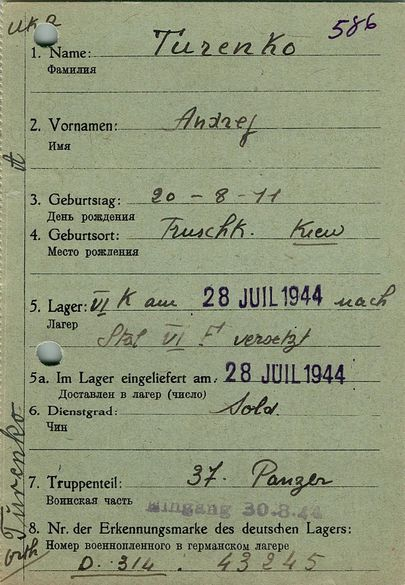 ukr
586
1. Name: Turenko
Фамилия
2. Vornamen: Andrej
Имя
3. Geburtstag: 20 - 8 - 11
День рождения
4. Geburtsort: Truschk. Kiew
Место рождения
5. Lager: VI K am 28 JUIL 1944 nach
Лагер
Stal VI F versetzt
5a. Im Lager eingeliefert am: 28 JUIL 1944
Доставлен в лагер (число)
6. Dienstgrad: Sold
Чин
7. Truppenteil: 37. Panzer
Воинская часть
Eingang 30.8.44
8. Nr. der Erkennungsmarke des deutschen Lagers:
Номер военнопленного в германском лагере
D. 314. 43245
A
Turenko
orth